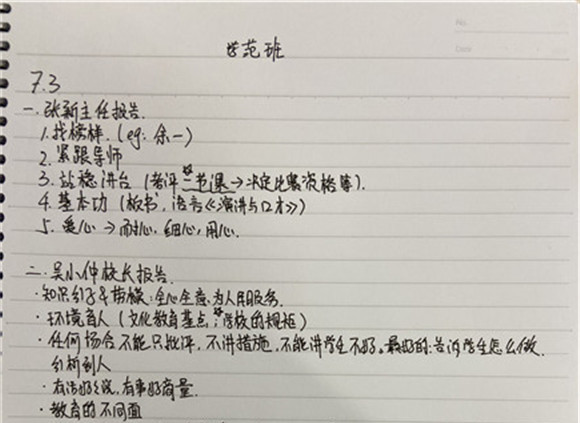 No.
Date
学范班
7.3
一.张新主任报告.
1.找榜样.(eg: 余一)
2.紧跟导师
3.站稳讲台 (考评二节课→决定比赛资格等).
4.基本功 (板书,语言《演讲与口才》)
5.爱心→耐心,细心,用心.
二.吴小仲校长报告.
·知识分子&楷模:全心全意为人民服务.
·环境育人 (文化教育基点,学校的规矩)
·任何场合不能只批评,不讲措施,不能讲学生不好,最好的:告诉学生怎么做.
分析别人
·有话好好说,有事好商量.
·教育的不同面